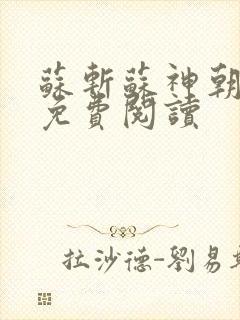 蘇斬蘇神朝
免費閱讀
拉沙德-劉易斯